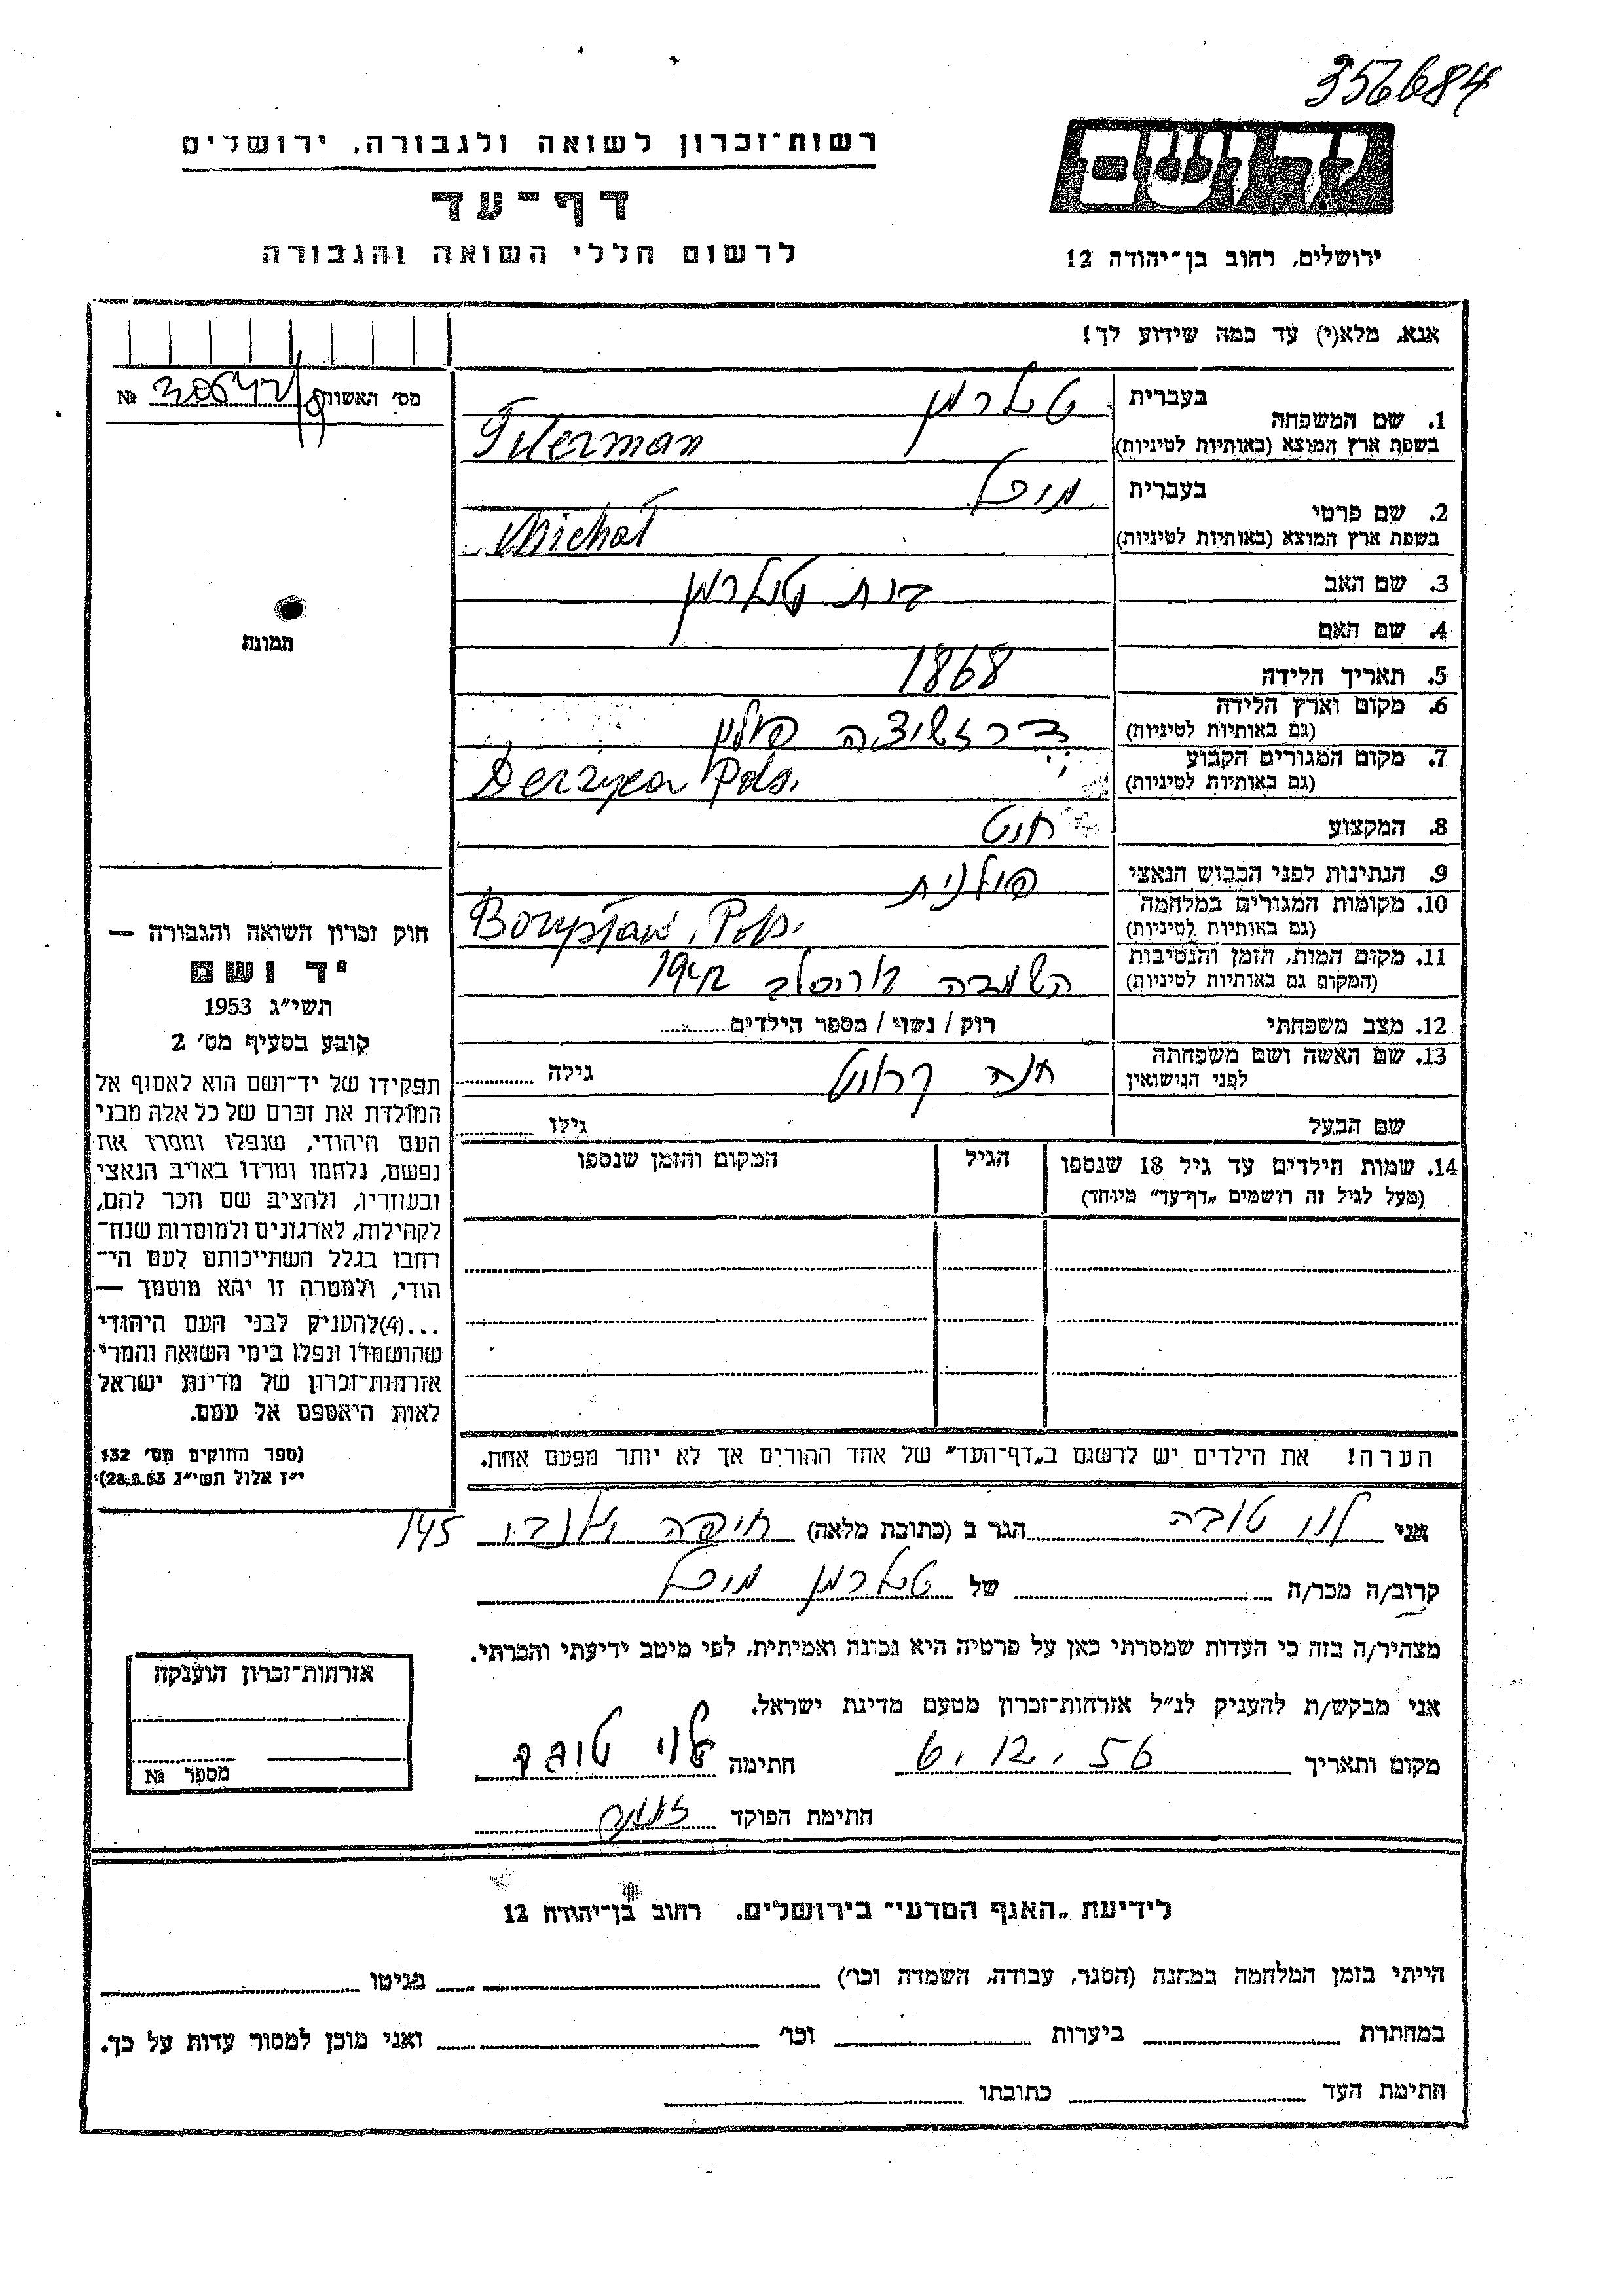 356684
רשות־זכרון לשואה ולגבורה, ירושלים
דף־עד
לרשום חללי השואה והגבורה
יד ושם
ירושלים, רחוב בן־יהודה 12
אנא, מלא(י) עד כמה שידוע לך!
מס' האשות №
1. שם המשפחה
בעברית
בשפת ארץ המוצא (באותיות לטיניות)
2. שם פרטי
בעברית מיכל
בשפת ארץ המוצא (באותיות לטיניות) Michał
3. שם האב
4. שם האם
5. תאריך הלידה 1868
6. מקום וארץ הלידה פולין
(גם באותיות לטיניות)
7. מקום המגורים הקבוע
(גם באותיות לטיניות)
8. המקצוע
9. הנתינות לפני הכבוש הנאצי פולנית
10. מקומות המגורים במלחמה Borysław, Pols.
(גם באותיות לטיניות)
11. מקום המות, הזמן והנסיבות 1942
(המקום גם באותיות לטיניות)
12. מצב משפחתי רוק / נשוי / מספר הילדים
13. שם האשה ושם משפחתה חנה גילה
לפני הנישואין
שם הבעל גילו
14. שמות הילדים עד גיל 18 שנספו הגיל המקום והזמן שנספו
(מעל לגיל זה רושמים „דף־עד" מיוחד)
הערה! את הילדים יש לרשום ב„דף־העד" של אחד ההורים אך לא יותר מפעם אחת.
תמונה
חוק זכרון השואה והגבורה —
יד ושם
תשי"ג 1953
קובע בסעיף מס' 2
תפקידו של יד־ושם הוא לאסוף אל
המולדת את זכרם של כל אלה מבני
העם היהודי, שנפלו ומסרו את
נפשם, נלחמו ומרדו באויב הנאצי
ובעוזריו, ולהציב שם וזכר להם,
לקהילות, לארגונים ולמוסדות שנח־
רחבו בגלל השתייכותם לעם הי־
הודי, ולמטרה זו יהא מוסמך —
...(4)להעניק לבני העם היהודי
שהושמדו ונפלו בימי השואה והמרי
אזרחות־זכרון של מדינת ישראל
לאות היאספם אל עמם.
(ספר החוקים מס' 132
י"ז אלול תשי"ג 28.8.53)
אני לוי טובה הגר ב (כתובת מלאה) חיפה 145
קרוב/ה מכר/ה של מיכל
מצהיר/ה בזה כי העדות שמסרתי כאן על פרטיה היא נכונה ואמיתית, לפי מיטב ידיעתי והכרתי.
אני מבקש/ת להעניק לנ"ל אזרחות־זכרון מטעם מדינת ישראל.
מקום ותאריך 6.12.56 חתימה לוי טובה
חתימת הפוקד
אזרחות־זכרון הוענקה
מספר №
לידיעת „האגף המדעי" בירושלים, רחוב בן־יהודה 12
הייתי בזמן המלחמה במחנה (הסגר, עבודה, השמדה וכו') בגיטו
במחתרת ביערות וכו' ואני מוכן למסור עדות על כך.
חתימת העד כתובתו